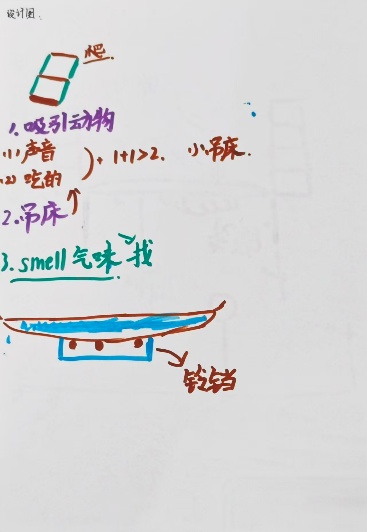 设计图
爬.
1.吸引动物
(1)声音
(2)吃的
+ 1+1>2.
小吊床.
2.吊床
3.smell气味 找
铃铛